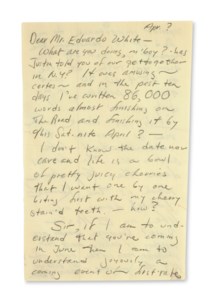 Apr. ?
Dear Mr. Edouardo White —
What are you doing, m'boy? Has
Justin told you of our gettogether
in N.Y.? It was amazing —
cortes — and in the past ten
days I've written 86,000
words almost finishing on
The Road and finishing it by
this Saturnite April ? —
I don't know the date nor
care and life is a bowl
of pretty juicy cherries
that I want one by one
biting first with my cherry
stain'd teeth. — how?
Sir, if I am to und-
erstand that you're coming
in June then I am to
understand joyously a
coming event of first rate